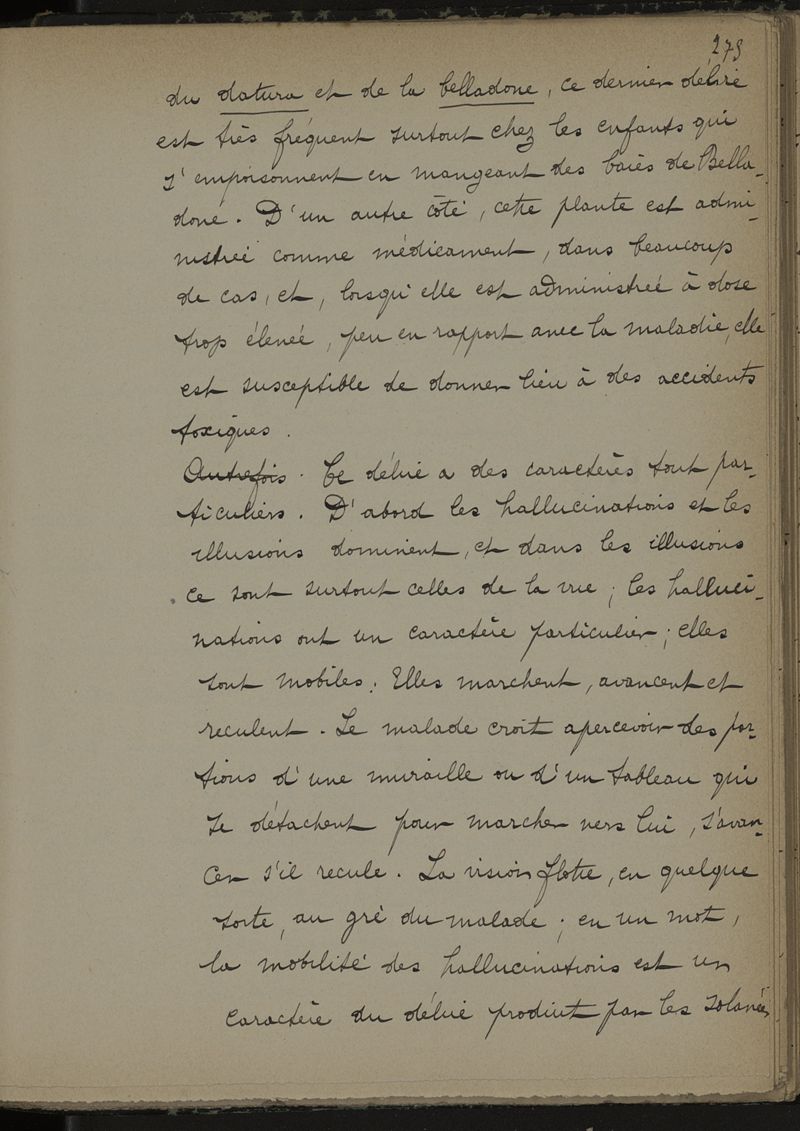 273
du datura et de la belladone, ce dernier délire
est très fréquent surtout chez les enfants qui
s'empoisonnent en mangeant des baies de Bella-
done. D'un autre côté, cette plante est admi-
nistrée comme médicament, dans beaucoup
de cas, et, lorsqu'elle est administrée à dose
trop élevée, peu en rapport avec la maladie, elle
est susceptible de donner lieu à des accidents
toxiques.
Autrefois. Ce délire a des caractères tout par-
ticuliers. D'abord les hallucinations et les
illusions dominent, et dans les illusions
ce sont surtout celles de la vue ; les halluci-
nations ont un caractère particulier ; elles
sont mobiles. Elles marchent, avancent et
reculent. Le malade croit apercevoir des por-
tions d'une muraille ou d'un tableau qui
se détachent pour marcher vers lui, s'avan-
cer s'il recule. La vision flotte, en quelque
sorte, au gré du malade ; en un mot,
la mobilité des hallucinations est un
caractère du délire produit par les solanées